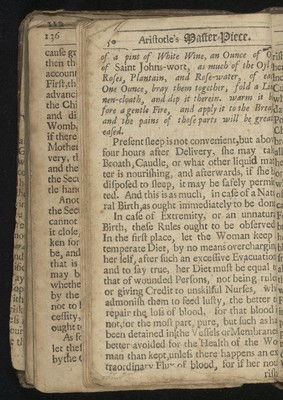 50 Aristotle's Master-Piece.
of a pint of White Wine, an Ounce of
of Saint Johns-wort, as much of the Oyl
Roses, Plantain, and Rose-water, of ea
One Ounce, bray them together, fold a Li
nen-cloath, and dip it therein, warm it
fore a gentle Fire, and apply it to the Brea
and the pains of those parts will be great
eased.
Present sleep is not convenient, but abo
four hours after Delivery, she may ta
Broath, Caudle, or what other liquid mat
ter is nourishing, and afterwards, if she
disposed to sleep, it may be safely permi
ted. And this is as much, in case of a Natu
ral Birth, as ought immediately to be don
In case of Extremity, or an unnatur
Birth, these Rules ought to be observed
In the first place, let the Woman keep
temperate Diet, by no means overchargin
her self, after such an excessive Evacuation
and to say true, her Diet must be equal
that of wounded Persons, not being rule
or giving Credit to unskilful Nurses, wh
admonish them to feed lusty, the better
repair the loss of blood. for that blood
not, for the most part, pure, but such as ha
been detained in the Vessels or Membrane
better avoided for the Health of the Wo
man than kept, unless there happens an ex
traordinary Flux of blood, for if her no
136
cause gr
then th
accoun
First, th
advanc
the Ch
and di
Womb,
if there
Mother
very, t
and the
the Sec
tle han
Anot
the Sec
cannot
it close
ken for
be, and
that is
may b
whethe
by the
not to
cessity,
ought t
As fo
let thes
by the